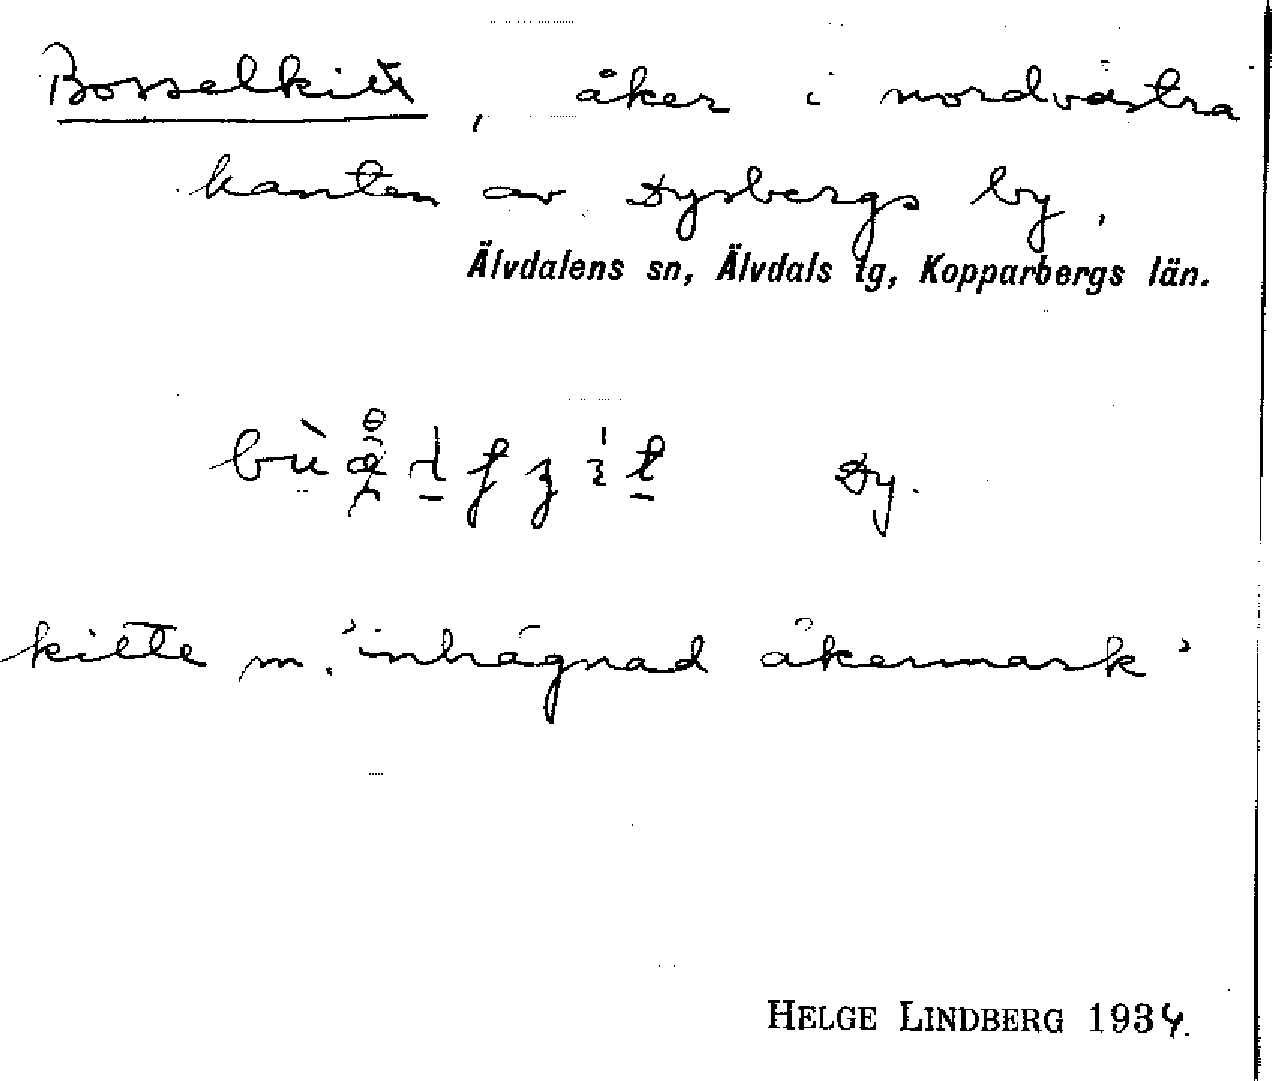 Bosselkitt, åker i nordvästra
kanten av Dysbergs by.
Älvdalens sn, Älvdals tg, Kopparbergs län.
Dy.
kitte m. 'inhägnad åkermark'
HELGE LINDBERG 1934.